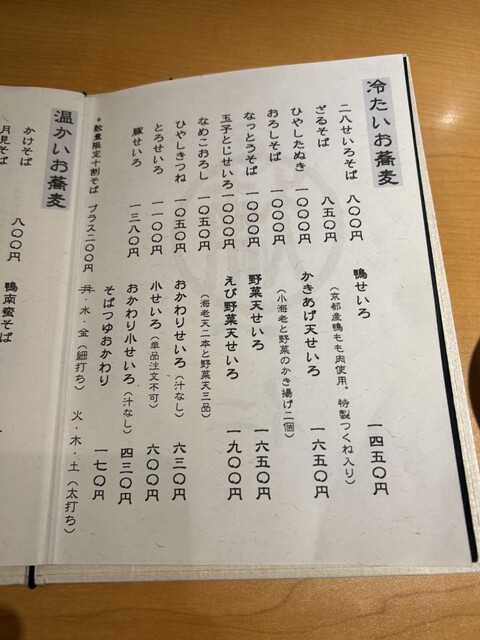 冷たいお蕎麦
二八せいろそば 八〇〇円
ざるそば 八五〇円
ひやしたぬき 一〇〇〇円
おろしそば 一〇〇〇円
なっとうそば 一〇〇〇円
玉子とじせいろ 一〇〇〇円
なめこおろし 一〇五〇円
ひやしきつね 一〇五〇円
とろせいろ 一一〇〇円
豚せいろ 一三八〇円
*数量限定十割そば プラス二〇〇円
鴨せいろ 一四五〇円
(京都産鴨もも肉使用。特製つくね入り)
かきあげ天せいろ 一六五〇円
(小海老と野菜のかき揚げ二個)
野菜天せいろ 一六五〇円
えび野菜天せいろ 一九〇〇円
(海老天二本と野菜天三品)
おかわりせいろ(汁なし) 六三〇円
小せいろ(単品注文不可) 六〇〇円
おかわり小せいろ(汁なし) 四三〇円
そばつゆおかわり 一七〇円
・水・金(細打ち) 火・木・土(太打ち)
温かいお蕎麦
かけそば 八〇〇円
月見そば
鴨南蛮そば